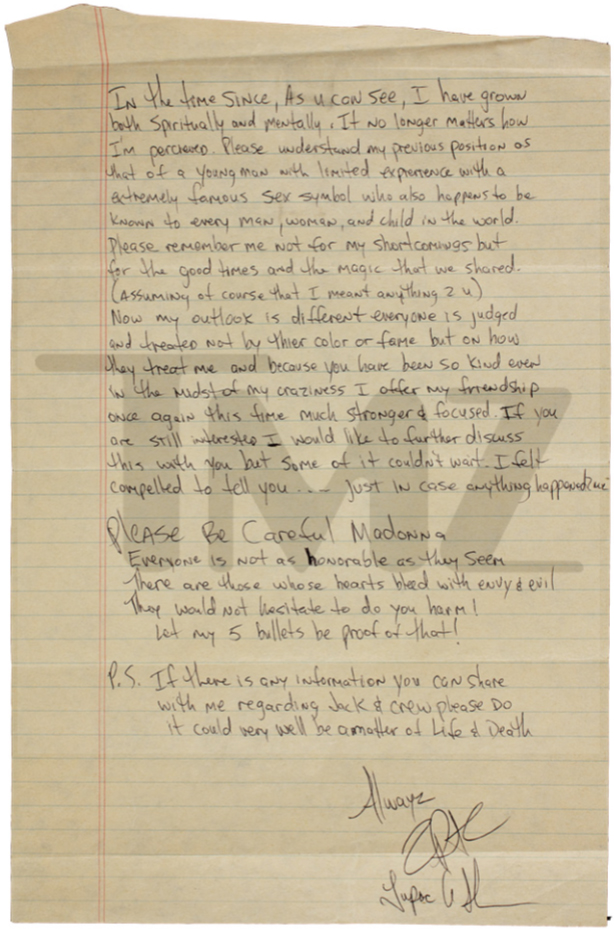 In the time since, As u can see, I have grown
both spiritually and mentally. It no longer matters how
I'm percieved. Please understand my previous position as
that of a young man with limited experience with a
extremely famous sex symbol who also happens to be
known to every man, woman, and child in the world.
Please remember me not for my shortcomings but
for the good times and the magic that we shared.
(Assuming of course that I meant anything 2 u)
Now my outlook is different everyone is judged
and treated not by thier color or fame but on how
they treat me and because you have been so kind even
in the midst of my craziness I offer my friendship
once again this time much stronger & focused. If you
are still interested I would like to further discuss
this with you but some of it couldn't wait. I felt
compelled to tell you .... just in case anything happened 2 me
Please Be Careful Madonna
Everyone is not as honorable as they seem
There are those whose hearts bleed with envy & evil
They would not hesitate to do you harm!
Let my 5 bullets be proof of that!
P.S. If there is any information you can share
with me regarding Jack & crew please Do
it could very well be a matter of Life & Death
Alwayz
Tupac
TMZ